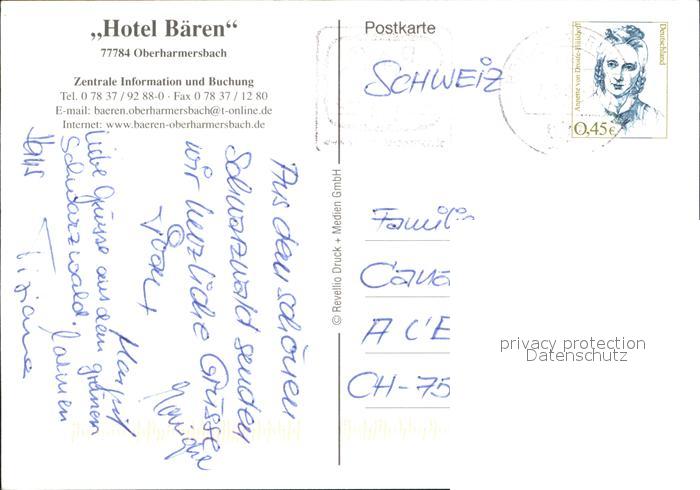 „Hotel Bären“
77784 Oberharmersbach
Zentrale Information und Buchung
Tel. 0 78 37 / 92 88-0 · Fax 0 78 37 / 12 80
E-mail: baeren.oberharmersbach@t-online.de
Internet: www.baeren-oberharmersbach.de
Aus dem schönen
Schwarzwald senden
wir herzliche Grüsse
Liebe Grüsse aus dem grünen
Schwarzwald.
Tiziana
© Revellio Druck + Medien GmbH
Postkarte
SCHWEIZ
Annette von Droste-Hülshoff
Deutschland
0,45 €
Famili
Cana
A L'E
CH-75
privacy protection
Datenschutz